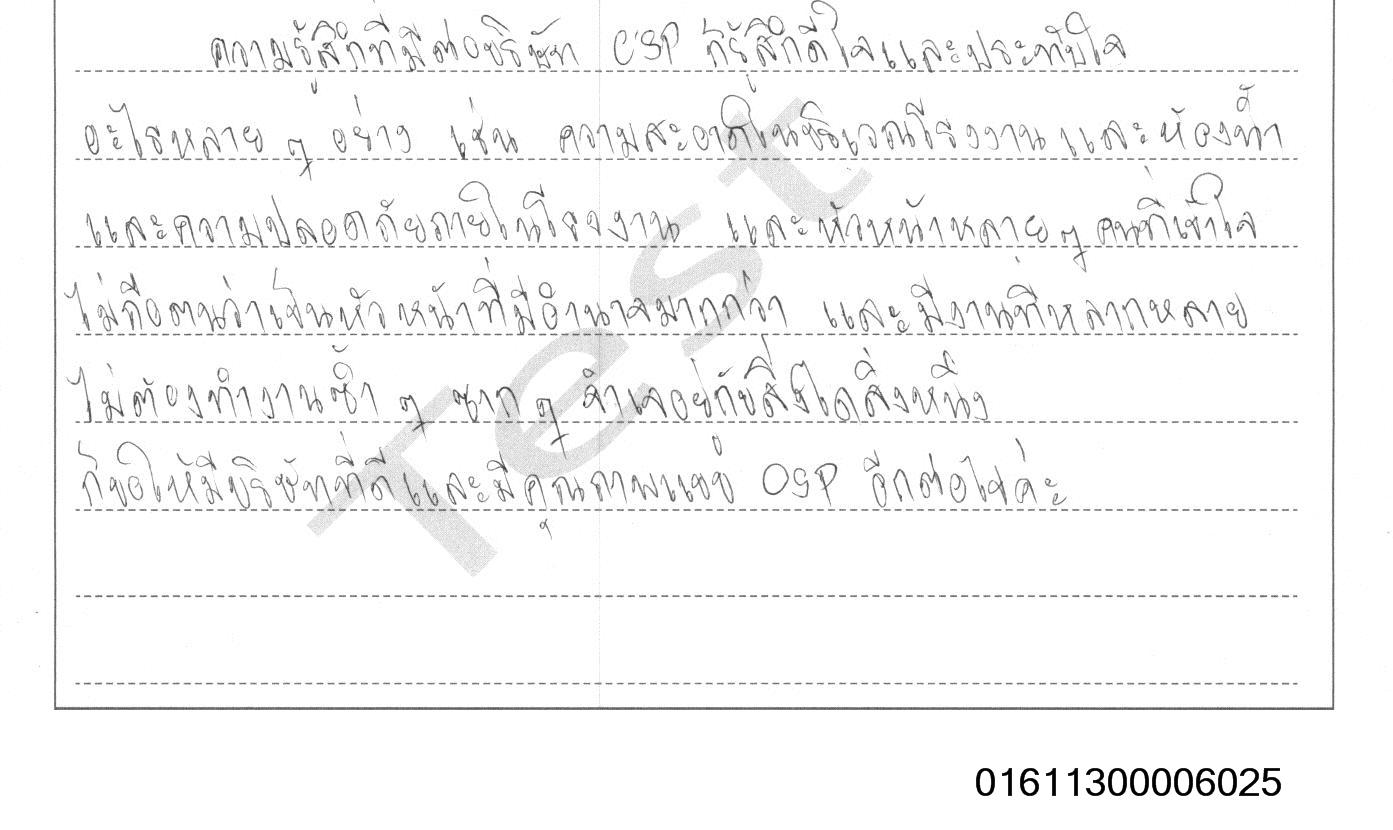 ความรู้สึกที่มีต่อบริษัท OSP ก็รู้สึกดีใจและประทับใจ
อะไรหลาย ๆ อย่าง เช่น ความสะอาดในบริเวณโรงงานและห้องน้ำ
และความปลอดภัยภายในโรงงาน และหัวหน้าหลาย ๆ คนที่เข้าใจ
ไม่ถือตนว่าเป็นหัวหน้าที่มีอำนาจมากกว่า และมีงานที่หลากหลาย
ไม่ต้องทำงานซ้ำ ๆ ซาก ๆ จำเจอยู่กับสิ่งใดสิ่งหนึ่ง
ก็ขอให้มีบริษัทที่ดีและมีคุณภาพแบบ OSP อีกต่อไปค่ะ
Test
01611300006025